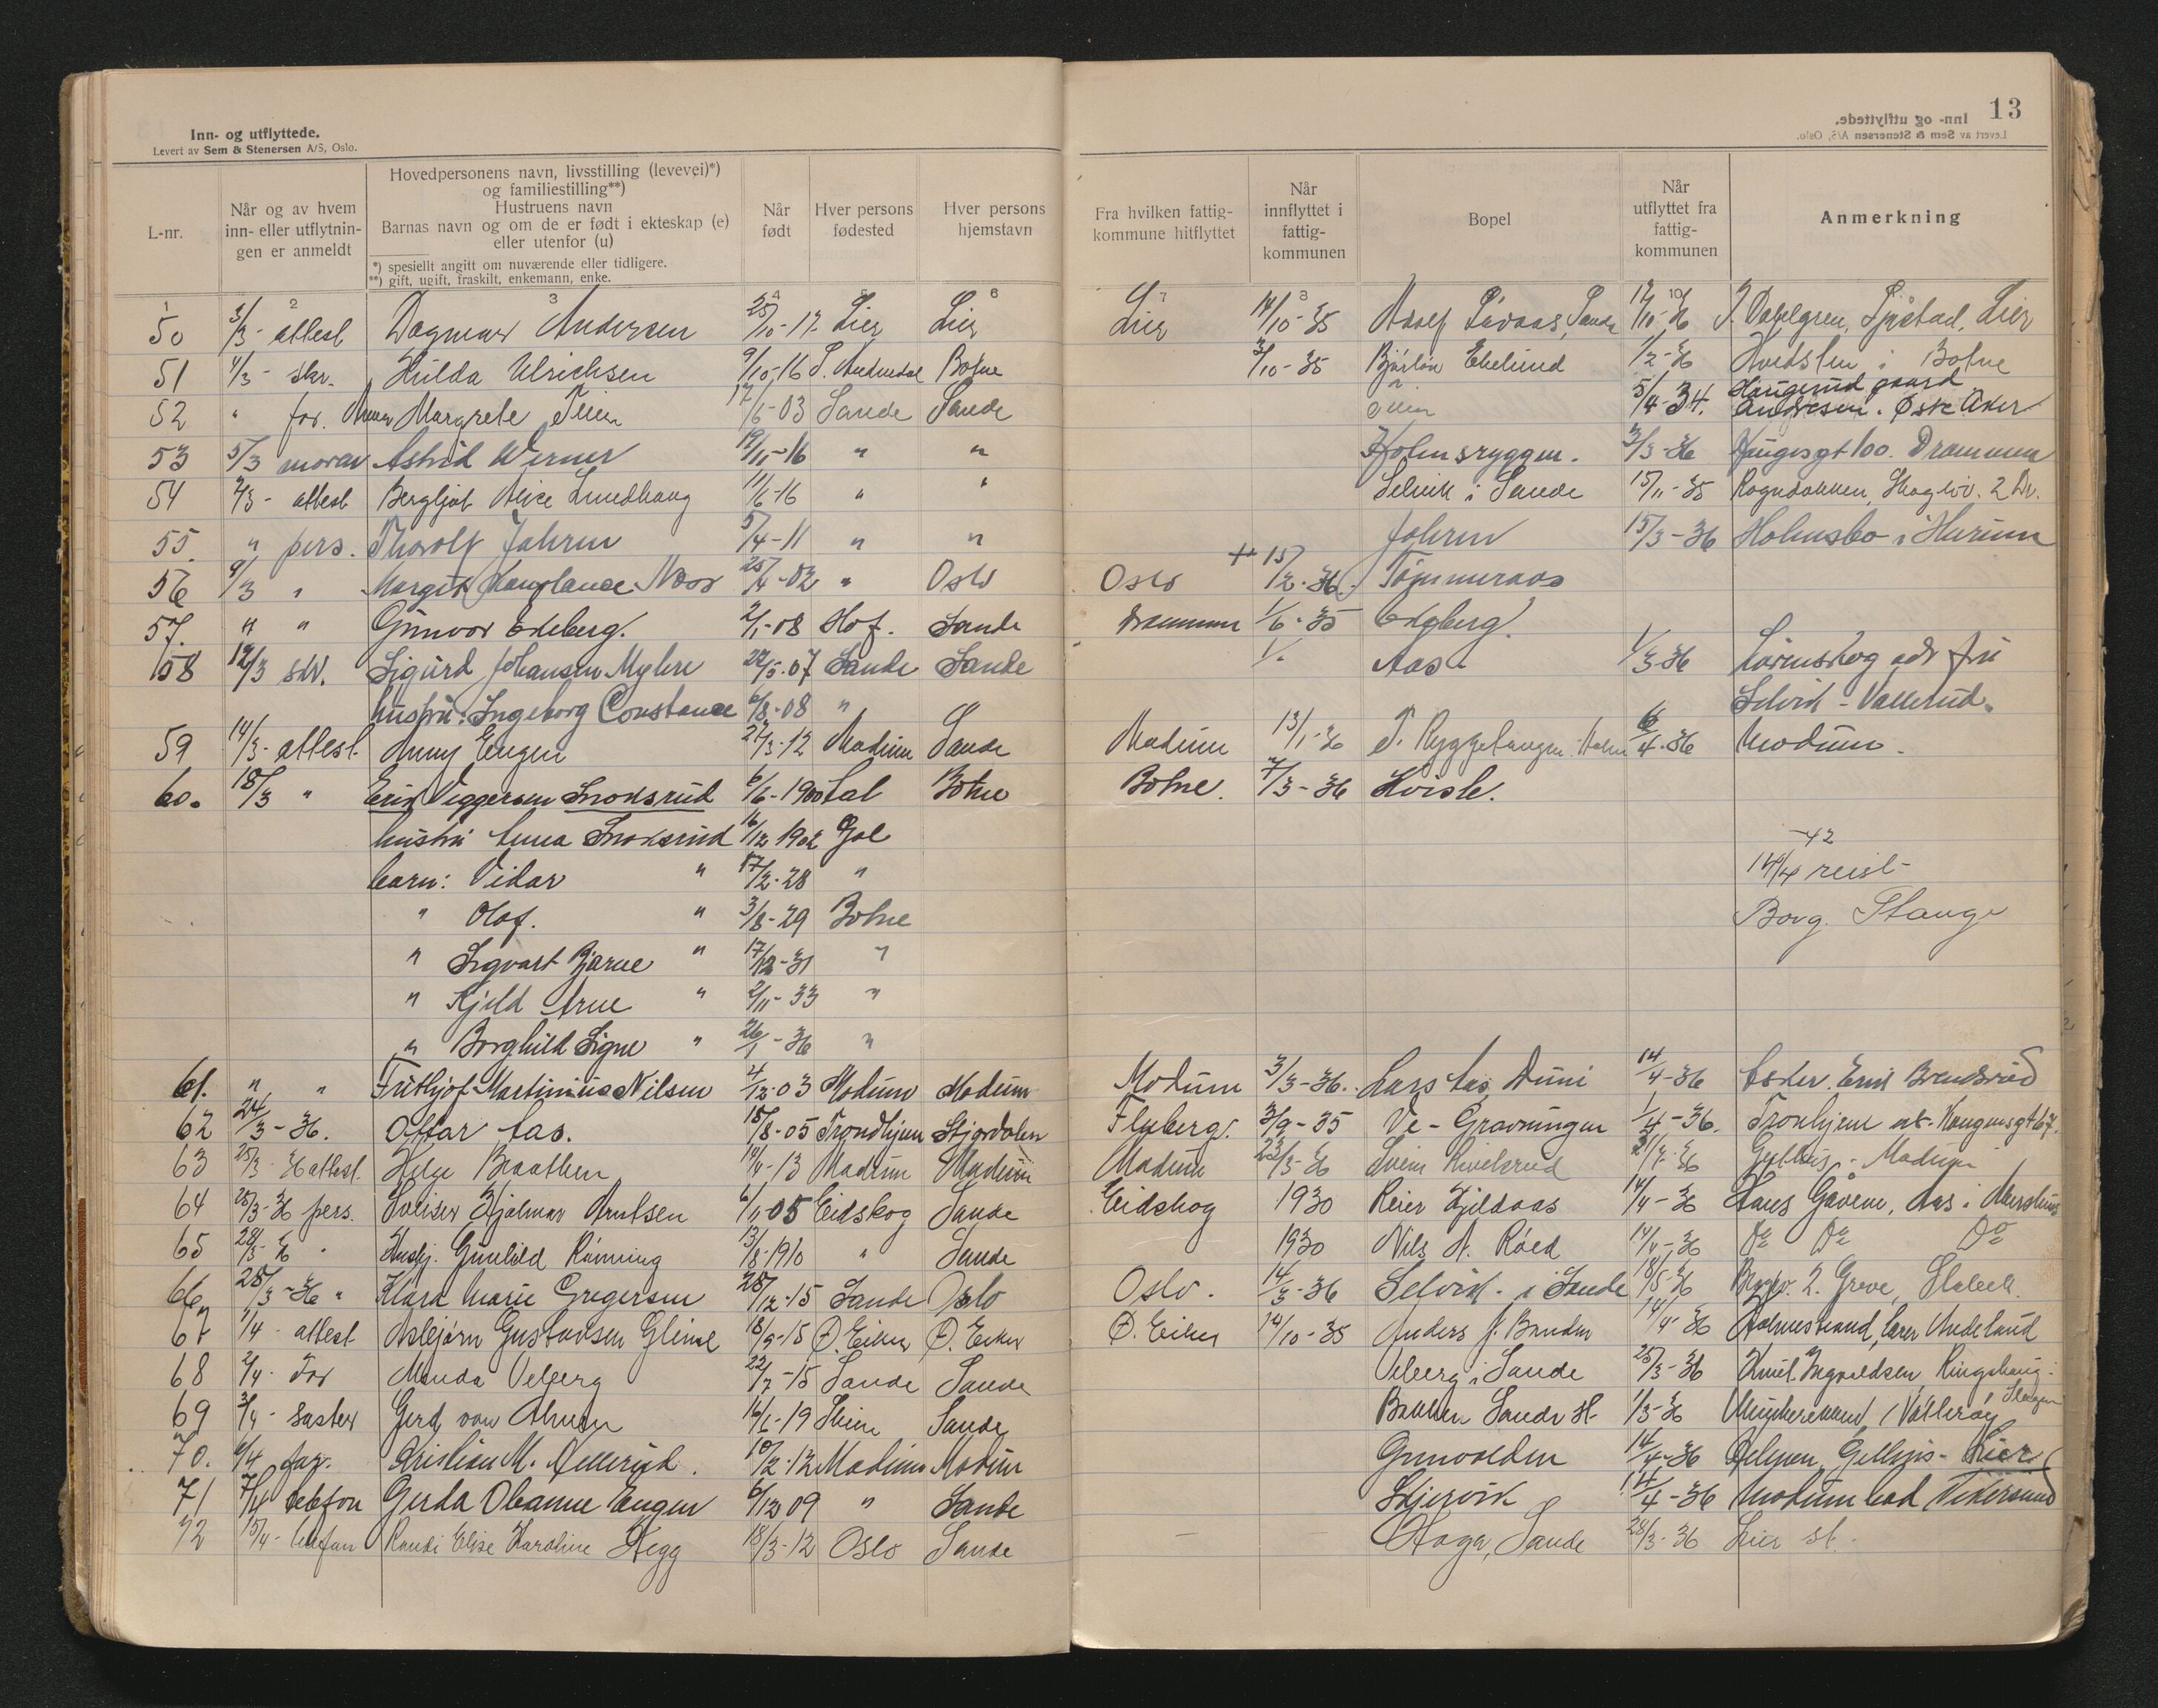 Inn- og utflyttede.
Levert av Sem & Stenersen A/S, Oslo.
13
L-nr.
Når og av hvem inn- eller utflytnin-gen er anmeldt
Hovedpersonens navn, livsstilling (levevei)*) og familiestilling**)
Hustruens navn
Barnas navn og om de er født i ekteskap (e) eller utenfor (u)
*) spesiellt angitt om nuværende eller tidligere.
**) gift, ugift, fraskilt, enkemann, enke.
Når født
Hver persons fødested
Hver persons hjemstavn
Fra hvilken fattig-kommune hitflyttet
Når innflyttet i fattig-kommunen
Bopel
Når utflyttet fra fattig-kommunen
Anmerkning
1 2 3 4 5 6 7 8 10
50 3/3 - attest Dagmar Andersen 25/10-17 Lier Lier Lier 14/10-35 Adolf Sande /10-36 J. Dahlgren, Lier
51 4/3 - skr. Hulda Ulrichsen 9/10-16 Botne /10-35 Ekelund 1/2-36 Hvedsten i Botne
52 " for. Margrete 17/6-03 Sande Sande 5/4-34. Haugerud gaard Andresen. Østre Aker
53 5/3 moren Astrid Werner 19/11-16 " " Holmsryggen. 3/3-36 Haugesgt 100. Drammen
54 /3 - attest Bergljot Alice Lundhaug 11/6-16 " " Selvik i Sande 15/11-35 2 Dr.
55. " pers. Thorolf Jahren 5/4-11 " " Jahren 15/3-36 Holmsbo i Hurum
56 9/3 " Margit Konstance Moor 25/4-02 " Oslo Oslo 15/2-36. Tømmeraas
57. " " Gunvor Edeberg. 2/1-08 Hof. Sande Drammen 1/6-35 Edeberg.
58 12/3 skr. Sigurd Johansen Myhre 22/5-07 Sande Sande 1/. Aas. 1/3-36 Lørenskog adr fru
hustru: Ingeborg Constance 6/8-08 " Selvik - Vallerud.
59 14/3 - attest. Anny Engen 27/3-12 Modum Sande Modum 13/1-36 T. Ryggetangen Holm 6/4-36 Modum.
60. 18/3 " Erik Viggersen Snoksrud 6/6-1900 Lal Botne Botne. 7/3-36 Kvisle.
hustru Anna Snoksrud 16/12 1902 Gol
barn: Vidar " 17/2-28 " -42
14/4 reist
" Olaf. " 3/8-29 Botne Borg. Stange
" Sigvart Bjarne " 17/12-31 "
" Kjeld Arne " 2/11-33 "
" Borghild Signe " 26/1-36 "
61. " " Frithjof Martinius Nilsen 4/12-03 Modum Modum Modum 3/3-36. Lars Aas, Duni 14/4-36 Asker. Brendsrud
62 24/3-36. Ottar Aas. 15/8-05 Trondhjem Stjørdalen Flesberg. 3/9-35 Ve - Gravningen 1/4-36. Tronhjem Kongensgt 67.
63 25/3-36 attest. Helge Braathen 10/4-13 Modum Modum Modum 23/3-36 Svein /4-36 Modum
64 25/3-36 pers. Hjalmar Arntsen 6/11-05 Eidskog Sande Eidskog 1930 Reier Kjeldaas 14/4-36 Hans Gåvem, Aas i
65 28/3-36 " Husbj. Gunhild Rønning 13/8-1910 " Sande 1930 Nils A. Røed 14/4-36 Do Do Do
66 25/3-36 " Klara Marie Gregersen 28/12-15 Sande Oslo Oslo. 14/3-36 Selvik - i Sande 18/5-36 2. Greve, Stabekk.
67 1/4 - attest Asbjørn Gustavsen Glime 18/9-15 Ø. Eiker Ø. Eiker Ø. Eiker 14/10-35 Anders J. Bonden 14/4-36 Holmestrand, lærer Undeland
68 2/4 - Far Minda Velberg 22/7-15 Sande Sande Velberg i Sande 25/3-36 Knut Ingvaldsen, Ringshaug
69 3/4 - søster Gerd von 16/6-19 Skien Sande Bakken Sande st. 1/3-36 Vallerøy, Slagen
70. 6/4 far. Kristian M. 10/2-12 Modum Modum Grunvolden 14/4-36 Lier
71 7/4 telefon Gerda Oleanne Engen 6/12 09 " Sande Skjervik 14/4-36 Modum bad Vikersund
72 15/4 - telefon Randi Elise Karoline Hegg 18/3-12 Oslo Sande Haga, Sande 28/3-36 Lier st.